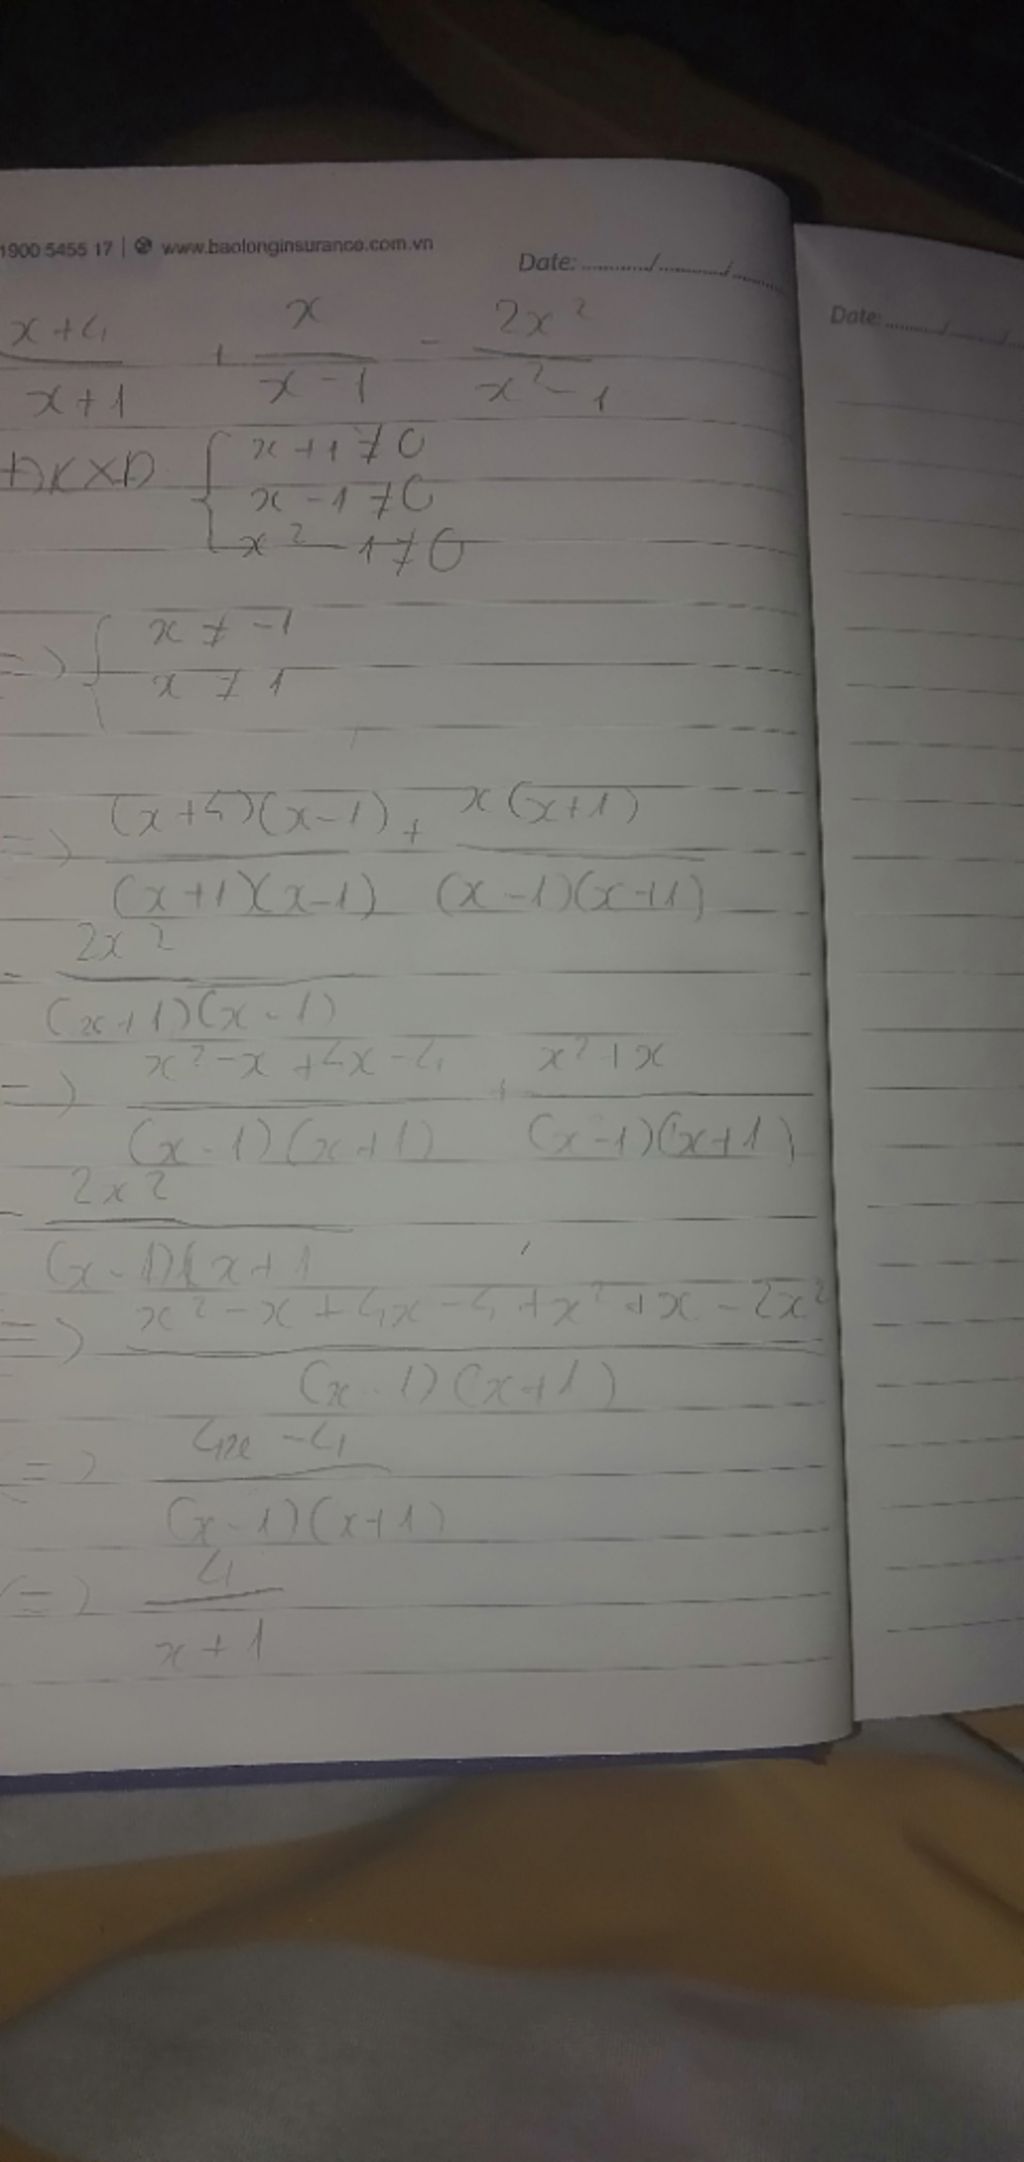 1900 5455 17 | www.baolonginsurance.com.vn
Date: ........../........../..........
Date: ........../........../..
x+4/x+1 + x/x-1 - 2x²/x²-1
ĐKXĐ { x+1≠0
x-1≠0
x²-1≠0
=> { x≠-1
x≠1
=> (x+4)(x-1)/(x+1)(x-1) + x(x+1)/(x-1)(x+1)
- 2x²/(x+1)(x-1)
=> x²-x+4x-4/(x-1)(x+1) + x²+x/(x-1)(x+1)
- 2x²/(x-1)(x+1
=> x²-x+4x-4+x²+x-2x²/(x-1)(x+1)
<=> 4x-4/(x-1)(x+1)
<=> 4/x+1